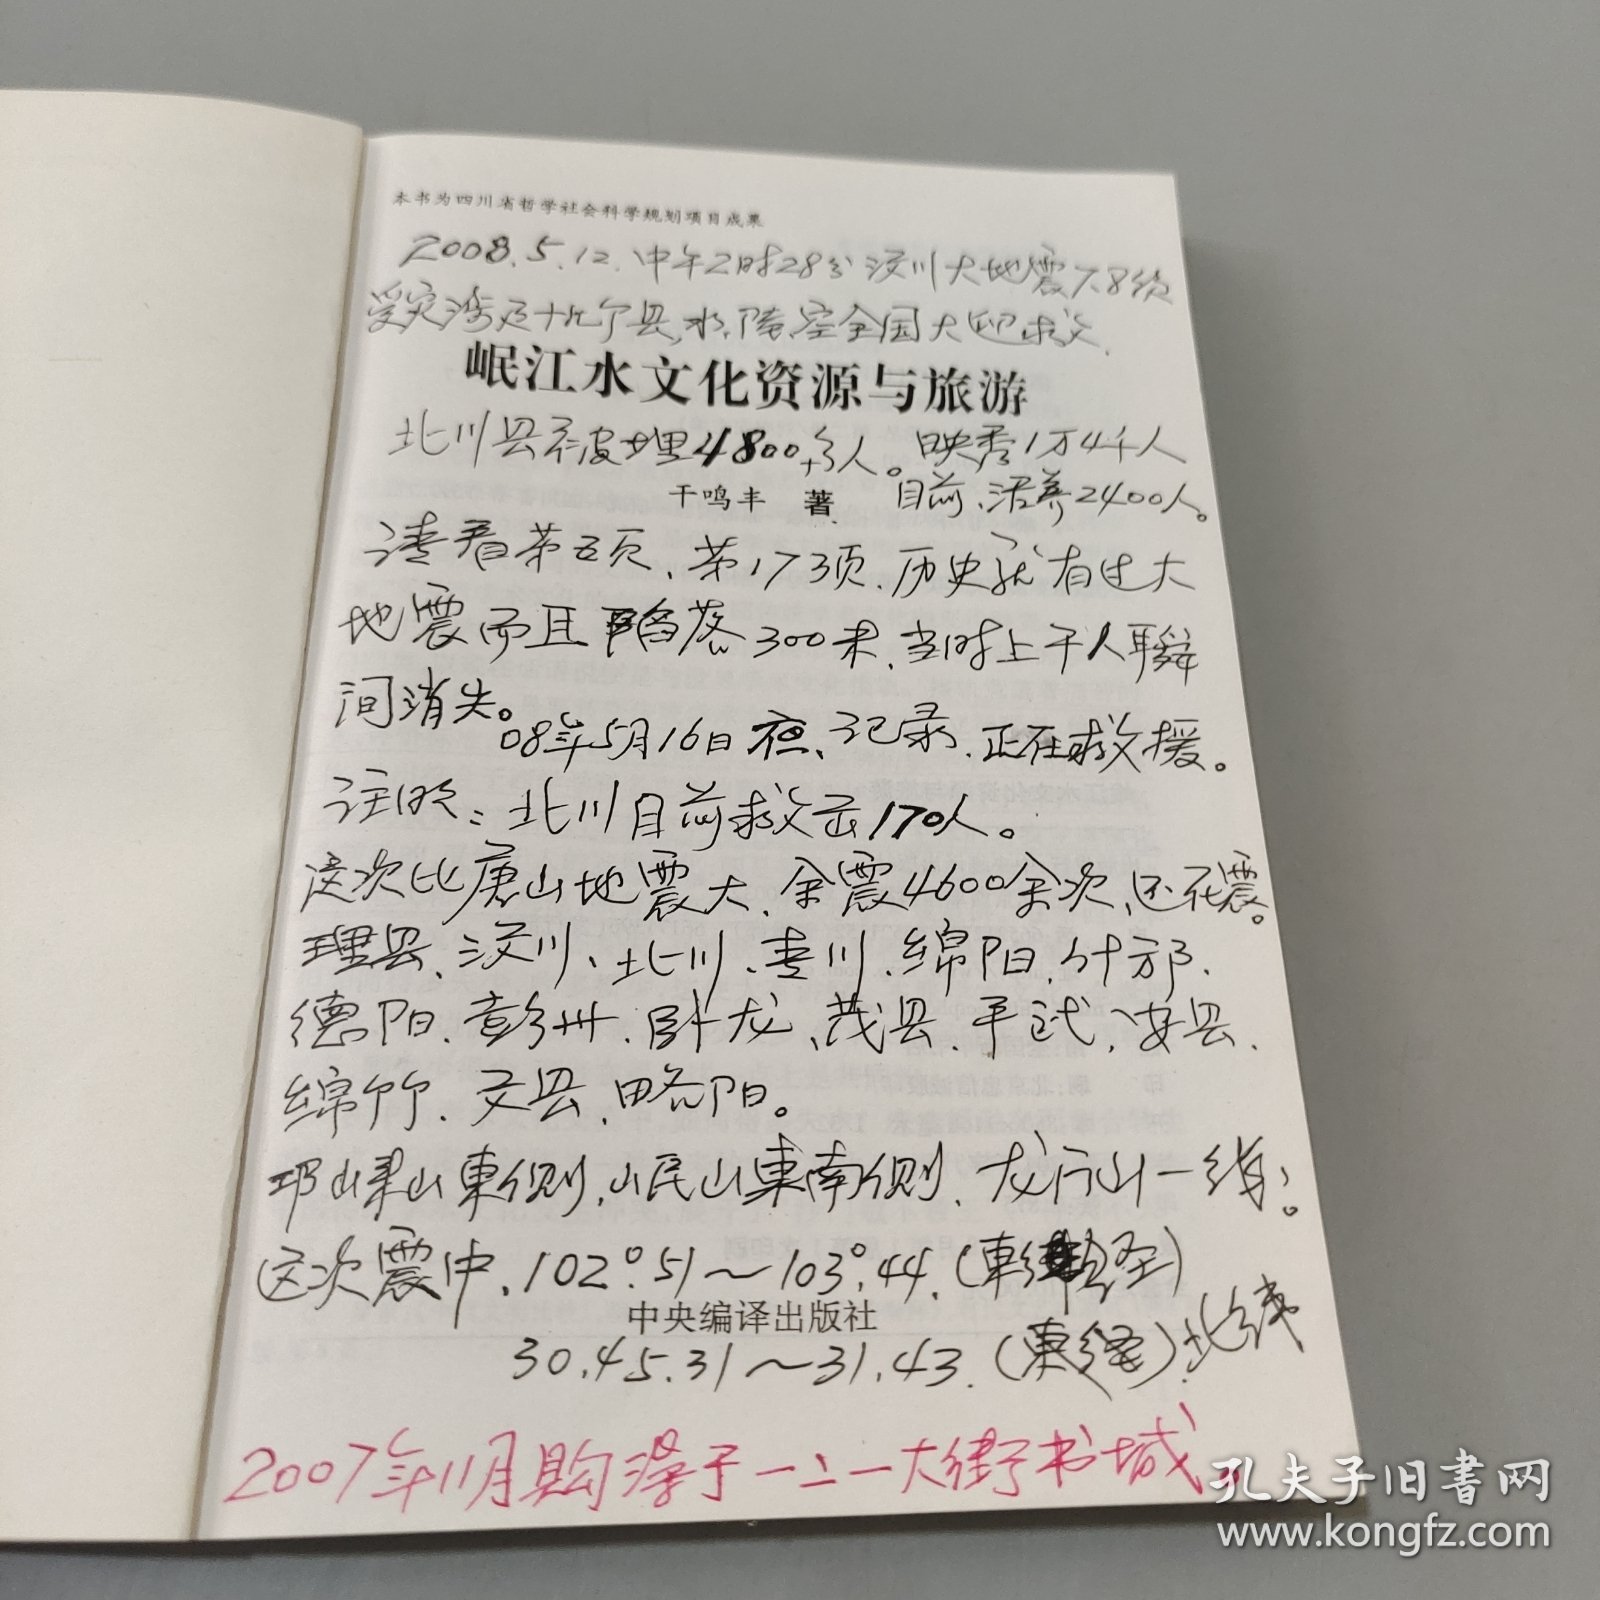 本书为四川省哲学社会科学规划项目成果
2008.5.12.中午2时28分汶川大地震7.8级
受灾涉及十几个县,水、陆、空全国大 救.
岷江水文化资源与旅游
北川县 被埋4800多人。映秀1万4千人
干鸣丰 著
目前、活着2400人。
请看第五页、第173页.历史就有过大
地震而且陷落300米.当时上千人瞬
间消失。
08年5月16日夜、记录.正在救援。
注明:北川目前救出170人。
这次比唐山地震大.余震4600余次、还在震。
理县、汶川、北川、青川.绵阳.什邡.
德阳.彭州.卧龙、茂县.平武,安县.
绵竹.文县.略阳。
邛崃山東侧.岷山東南侧.龙门山一线。
这次震中.102°.51~103°.44.(東 经)
中央编译出版社
30.45.31~31.43.(東经).北纬
2007年11月购 于一二一大街书城.
孔夫子旧书网
www.kongfz.com